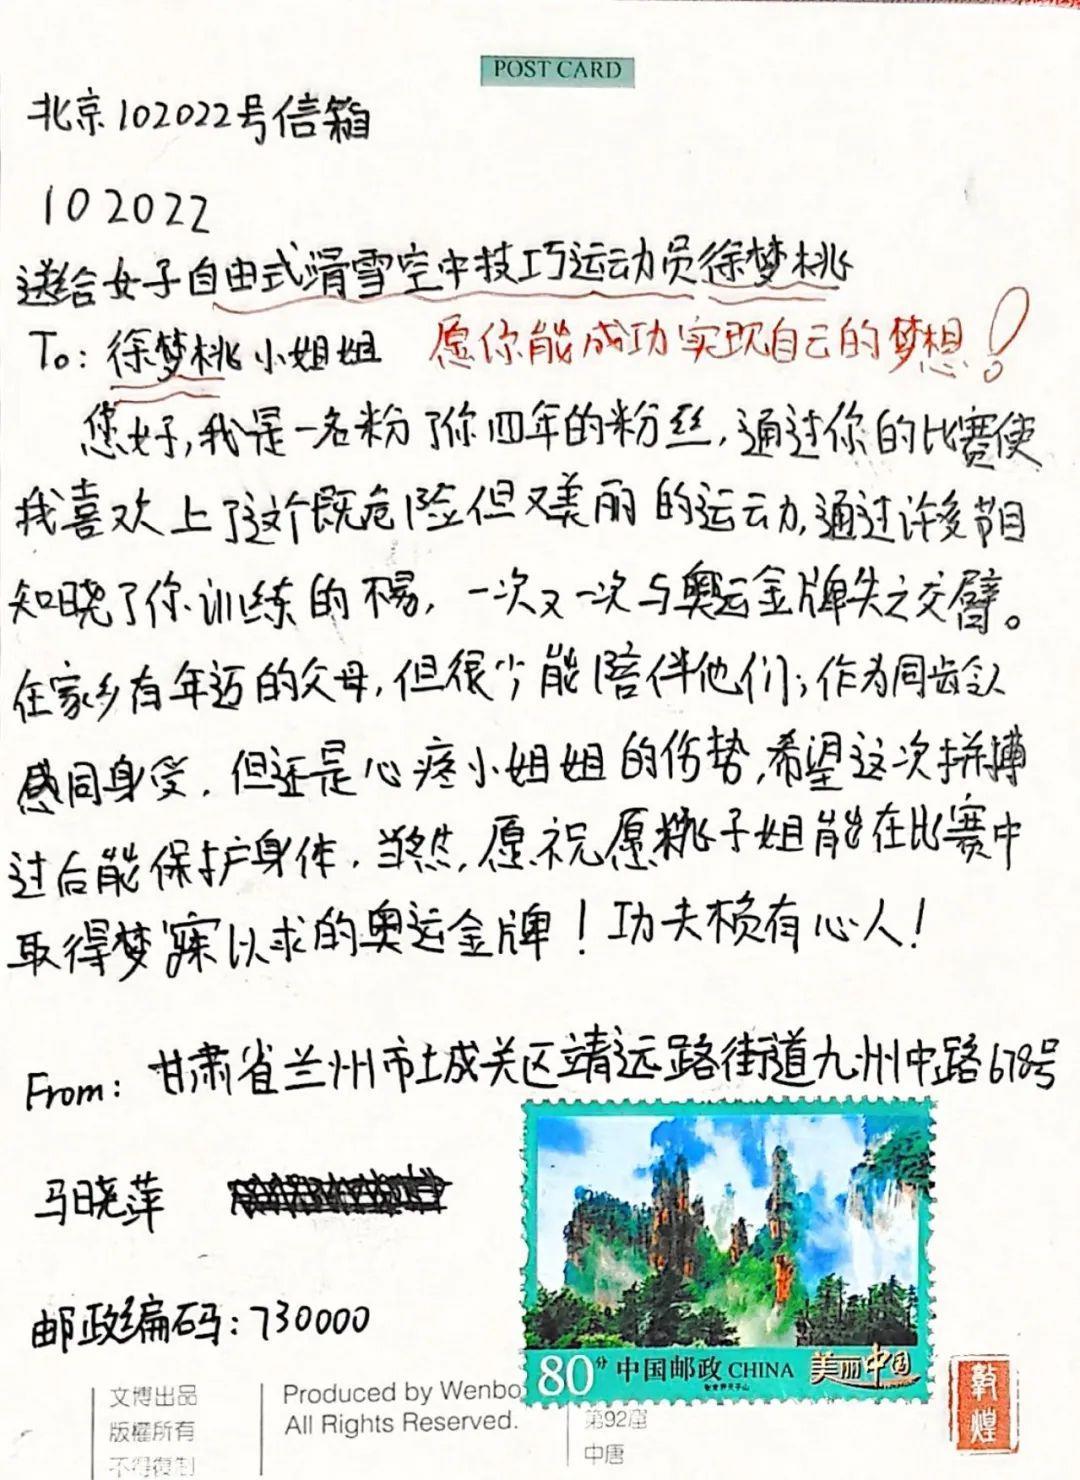 POST CARD
北京102022号信箱
102022
送给女子自由式滑雪空中技巧运动员徐梦桃
To: 徐梦桃小姐姐 愿你能成功实现自己的梦想！
您好,我是一名粉了你四年的粉丝,通过你的比赛使
我喜欢上了这个既危险但又美丽的运动,通过许多节目
知晓了你训练的不易,一次又一次与奥运金牌失之交臂。
在家乡有年迈的父母,但很少能陪伴他们;作为同龄人
感同身受,但还是心疼小姐姐的伤势,希望这次拼搏
过后能保护身体,当然,愿祝愿桃子姐能在比赛中
取得梦寐以求的奥运金牌！功夫赖有心人！
From: 甘肃省兰州市城关区靖远路街道九州中路678号
马晓萍
邮政编码:730000
80分 中国邮政 CHINA 美丽中国
文博出品
版權所有
不得復制
Produced by Wenbo
All Rights Reserved.
第92窟
中唐
敦煌